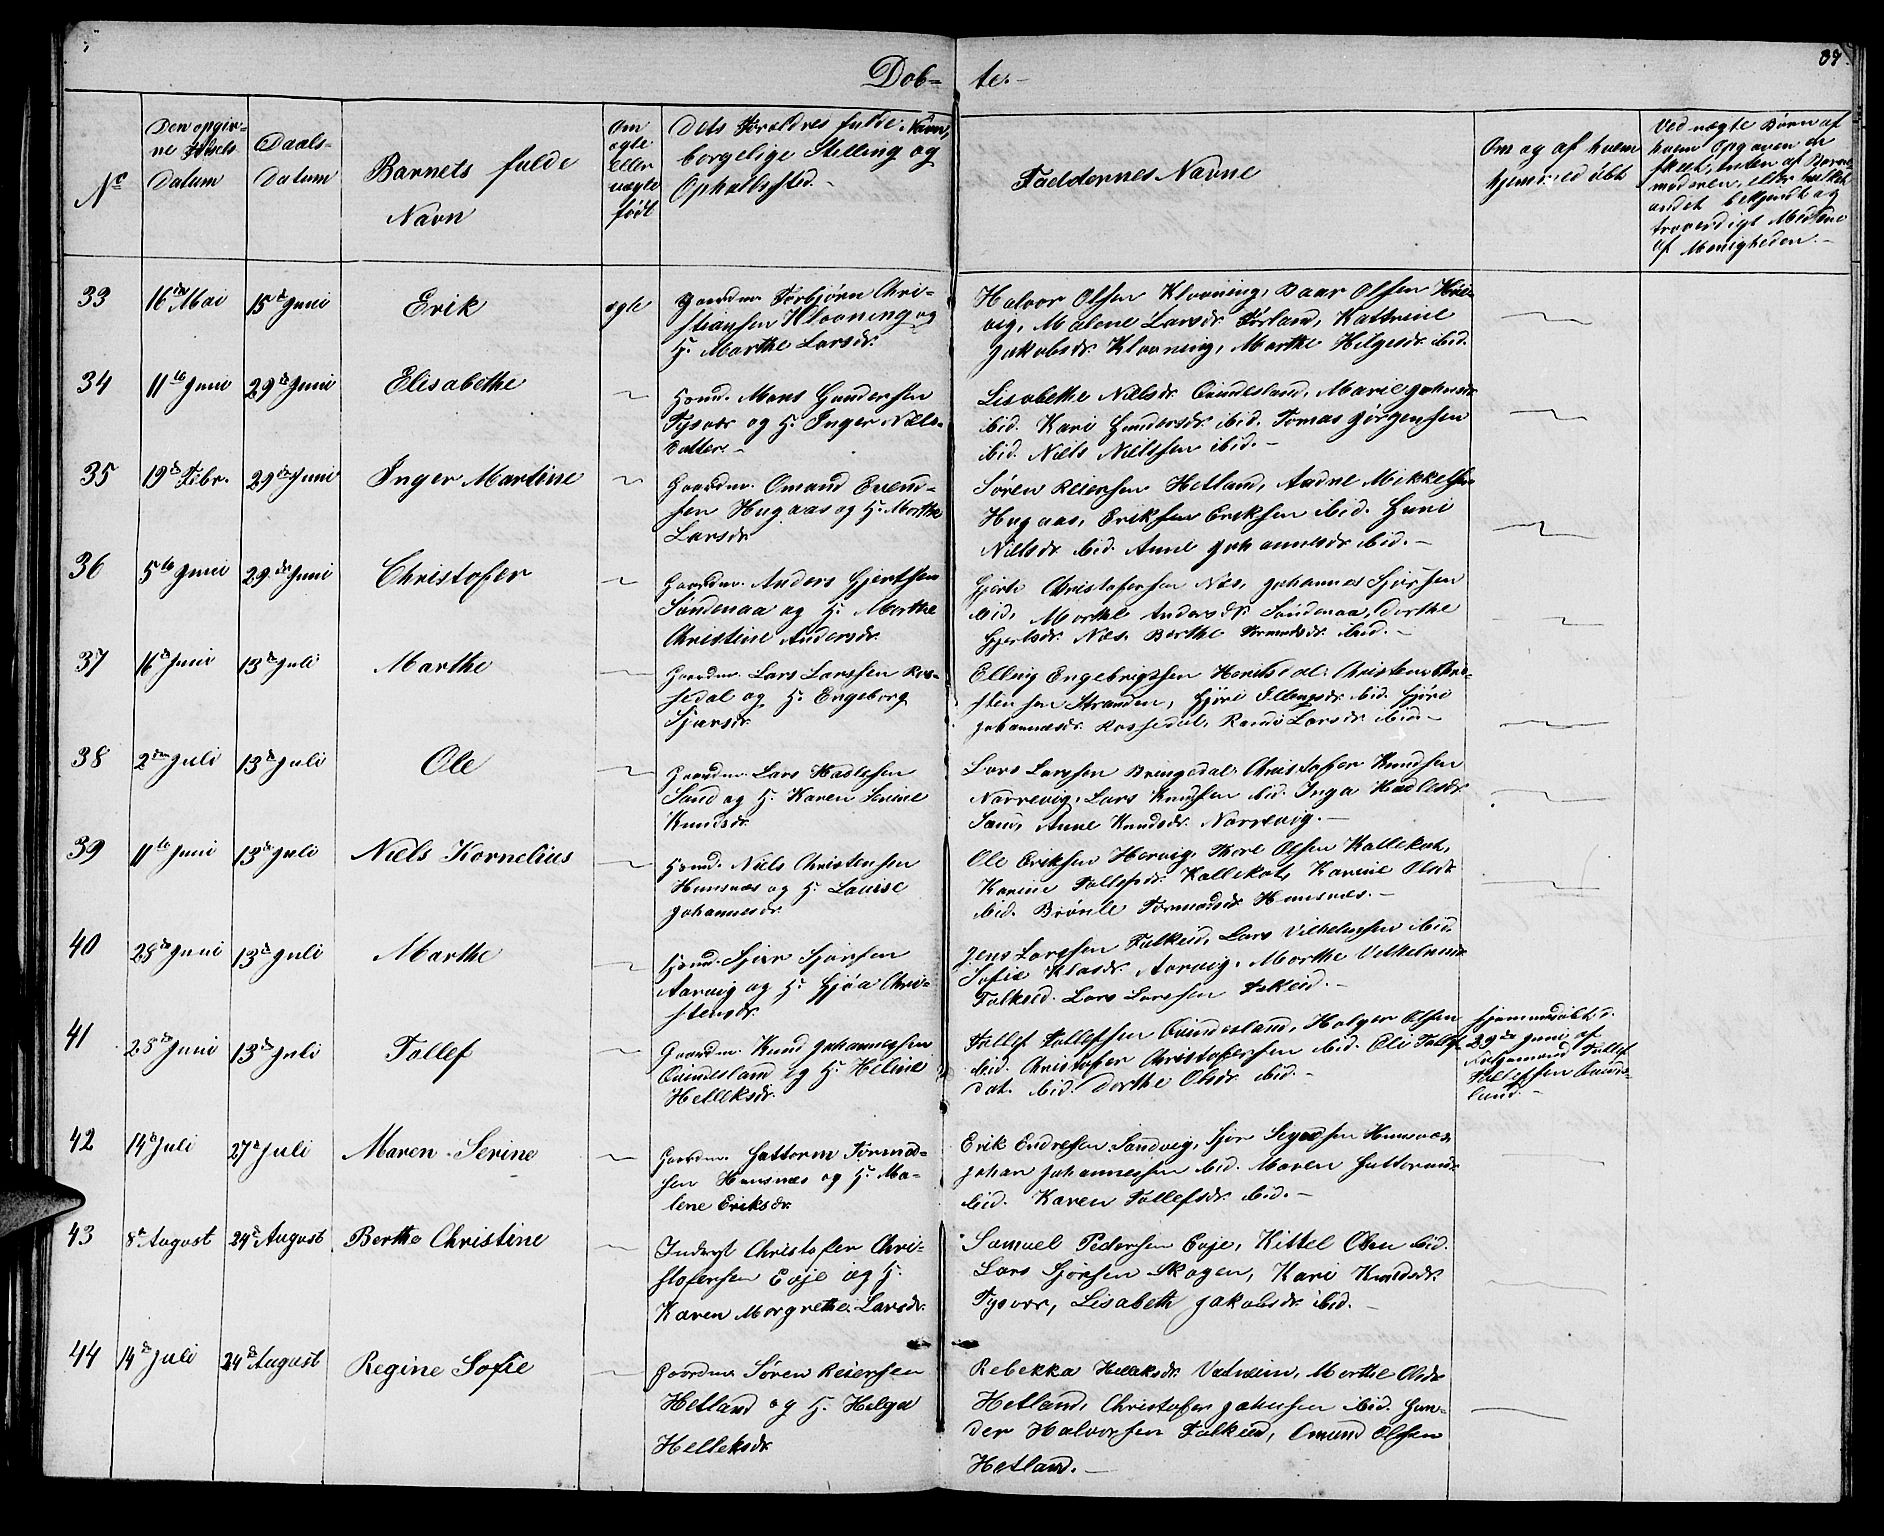 Døb= te.-
N°
Den opgiv=
ne
Datum
Daabs-
Datum
Barnets fulde
Navn
Om
ægte
eller
uægte
født
Dets Foreldres fulde Navn,
borgelige Stilling og
Opholdssted.-
Faddernes Navne
Om og af hvem
hjemmedøbt
Ved uægte Børn af
hvem Opgaven er
skeet, enten af Barne
moderen, eller
andet bekjendt og
troværdigt Medlem
af Menigheden.-
33 16de Mai 15d Juni Erik ægte Gaardm. Torbjørn Chri-
stiansen Kloaning og
H. Marthe Larsdr.
Halvor Olsen Klovning, Baar Olsen
vig, Malene Larsdr. Førland, Kattrine
Jakobsdr. Klovning, Marthe Helgesdr. ibid.
34 11te Juni 29d Juni Elisabethe Huusm. Mons Gundersen
Tysvær og H. Inger Niels-
datter.-
Lisabethe Nielsdr. Qvindesland, Marie
ibid. Kari Gundersdr. ibid. Tomas Jørgensen
ibid. Niels Nielssen ibid.-
35 19d Febr. 29d Juni Inger Martine Gaardm. Omund Evend-
sen Hugaas og H. Marthe
Larsdr.
Søren Reiersen Hetland, Aadne Mikkelsen
Hugaas, Eriksen ibid. Guri
Nielsdr. ibid. Anne Johannesdr. ibid.-
36 5te Juni 29de Juni Christofer Gaardm. Anders Gjertsen
Søndenaa og H. Marthe
Christine Andersdr.
Gjert Christofersen Nes, Johannes Sjørsen
ibid, Marthe Andersdr. Søndenaa, Dorthe
Gjertsdr. Nes. Berthe Tormodsdr. ibid.-
37 16d Juni 13d Juli Marthe Gaardm. Lars Larssen Ros-
sedal og H. Engeborg
Sjursdr.
Elling Engebrigtsen Christen Chri-
stensen Stranden, Gjøri Ellingsdr. ibid. Gjøri
Johannesdr. Rossedal, Randi Larsdr. ibid-
38 2den Juli 13d Juli Ole Gaardm. Lars Hadlesen
Sand og H. Karen Serine
Knudsdr.
Lars Larssen Bringedal, Christofer Knudsen
Norrevig, Lars Knudsen ibid. Inga Hadlesdr.
Sand, Anne Knudsdr. Norrevig.-
39 11te Juni 13d Juli Niels Kornelius Huusm. Niels Christensen
Hemsnæs og H. Lauise
Johannesdr.
Ole Eriksen Hervig, Thore Olsen Kallekot,
Karine Tollefsdr. Kallekot, Karine Olsdr.
ibid. Brønle Tormodsdr. Hemsnæs.-
40 28d Juni 13d Juli Marthe Huusm. Sjør Sjørsen
Aarvig og H. Gjøa Chri-
stensdr.
Jens Larssen Falkeid, Lars Vilhelmsen ibid,
Sofie Klasdr. Aarvig, Marthe
Falkeid. Lars Larssen Falkeid.-
41 28d Juni 13d Juli Tollef Gaardm. Knud Johannessen
Qvindesland og H. Heline
Helleksdr.
Tollef Tollefsen Qvindesland, Holger Olsen
ibid. Christofer Christofersen ibid. Tollefs
dat. ibid. Dorthe Olsdr. ibid.-
Hjemmedøbt d.
29de Juni af
Tollef
Tollefsen Qvindes-
land.-
42 14d Juli 27d Juli Maren Serine Gaardm. Guttorm Tormod-
sen Hemsnæs og H. Ma-
lene Eriksdr.
Erik Endresen Sandvig, Sjør Hemsnæs,
Johan Johannessen ibid. Maren Guttormsdr.
ibid. Karen Tollefsdr. ibid.-
43 8d August 24d August Berthe Christine Inderst Christofer Chri-
stofersen Evje og H.
Karen Margrethe Larsdr.
Samuel Pedersen Evje, Kittel Olsen ibid.
Lars Sjørsen Skogen, Kari Knudsdr.
Tysvær, Lisabeth Jakobsdr. ibid.-
44 14d Juli 24d August Regine Sofie Gaardm. Søren Reiersen
Hetland og H. Helga
Helleksdr.
Rebekka Helleksdr. Vatneim, Marthe Olsdr.
Hetland, Christofer Johnsen ibid. Gun-
der Halvorsen Falkeid, Omund Olsen
Hetland.-